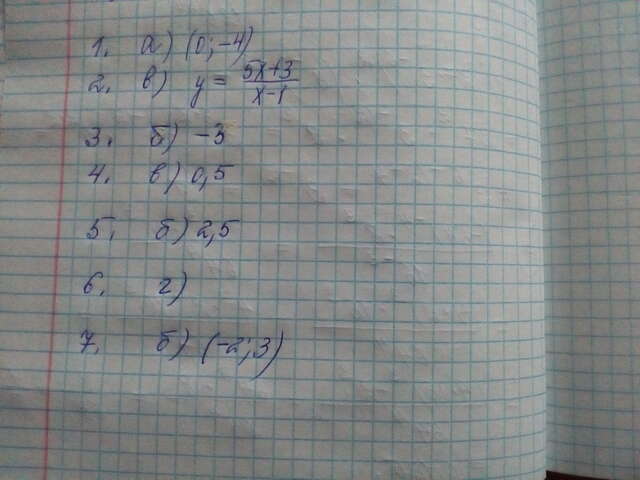 1. а) (0; -4)
2. в) y = (5x+3)/(x-1)
3. б) -3
4. в) 0,5
5. б) 2,5
6. г)
7. б) (-2; 3)